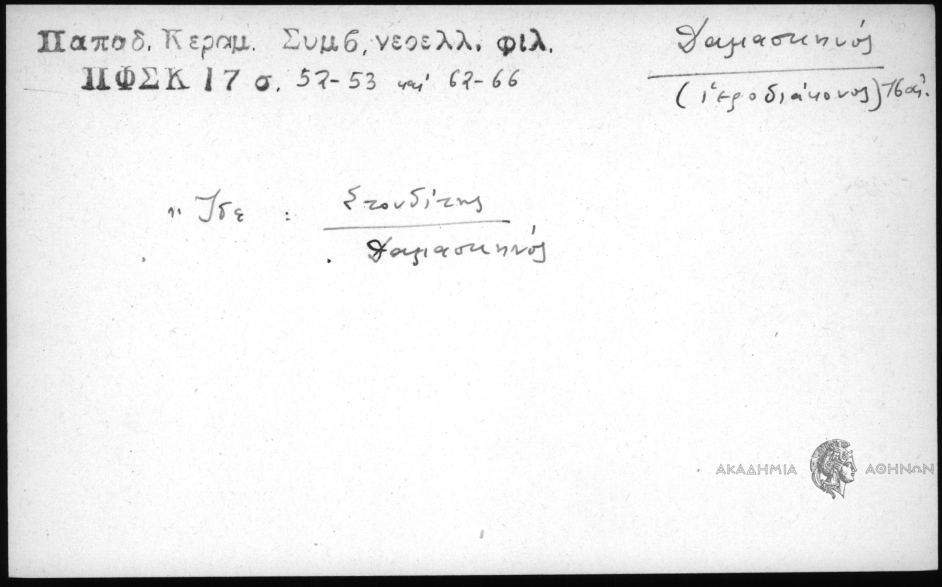 Παπαδ. Κεραμ. Συμβ, νεοελλ. φιλ.
ΠΦΣΚ 17 σ. 52-53 καί 62-66
Δαμασκηνός
(ἱεροδιάκονος) 16 αἰ.
Ἴδε : Στουδίτης
Δαμασκηνός
ΑΚΑΔΗΜΙΑ ΑΘΗΝΩΝ